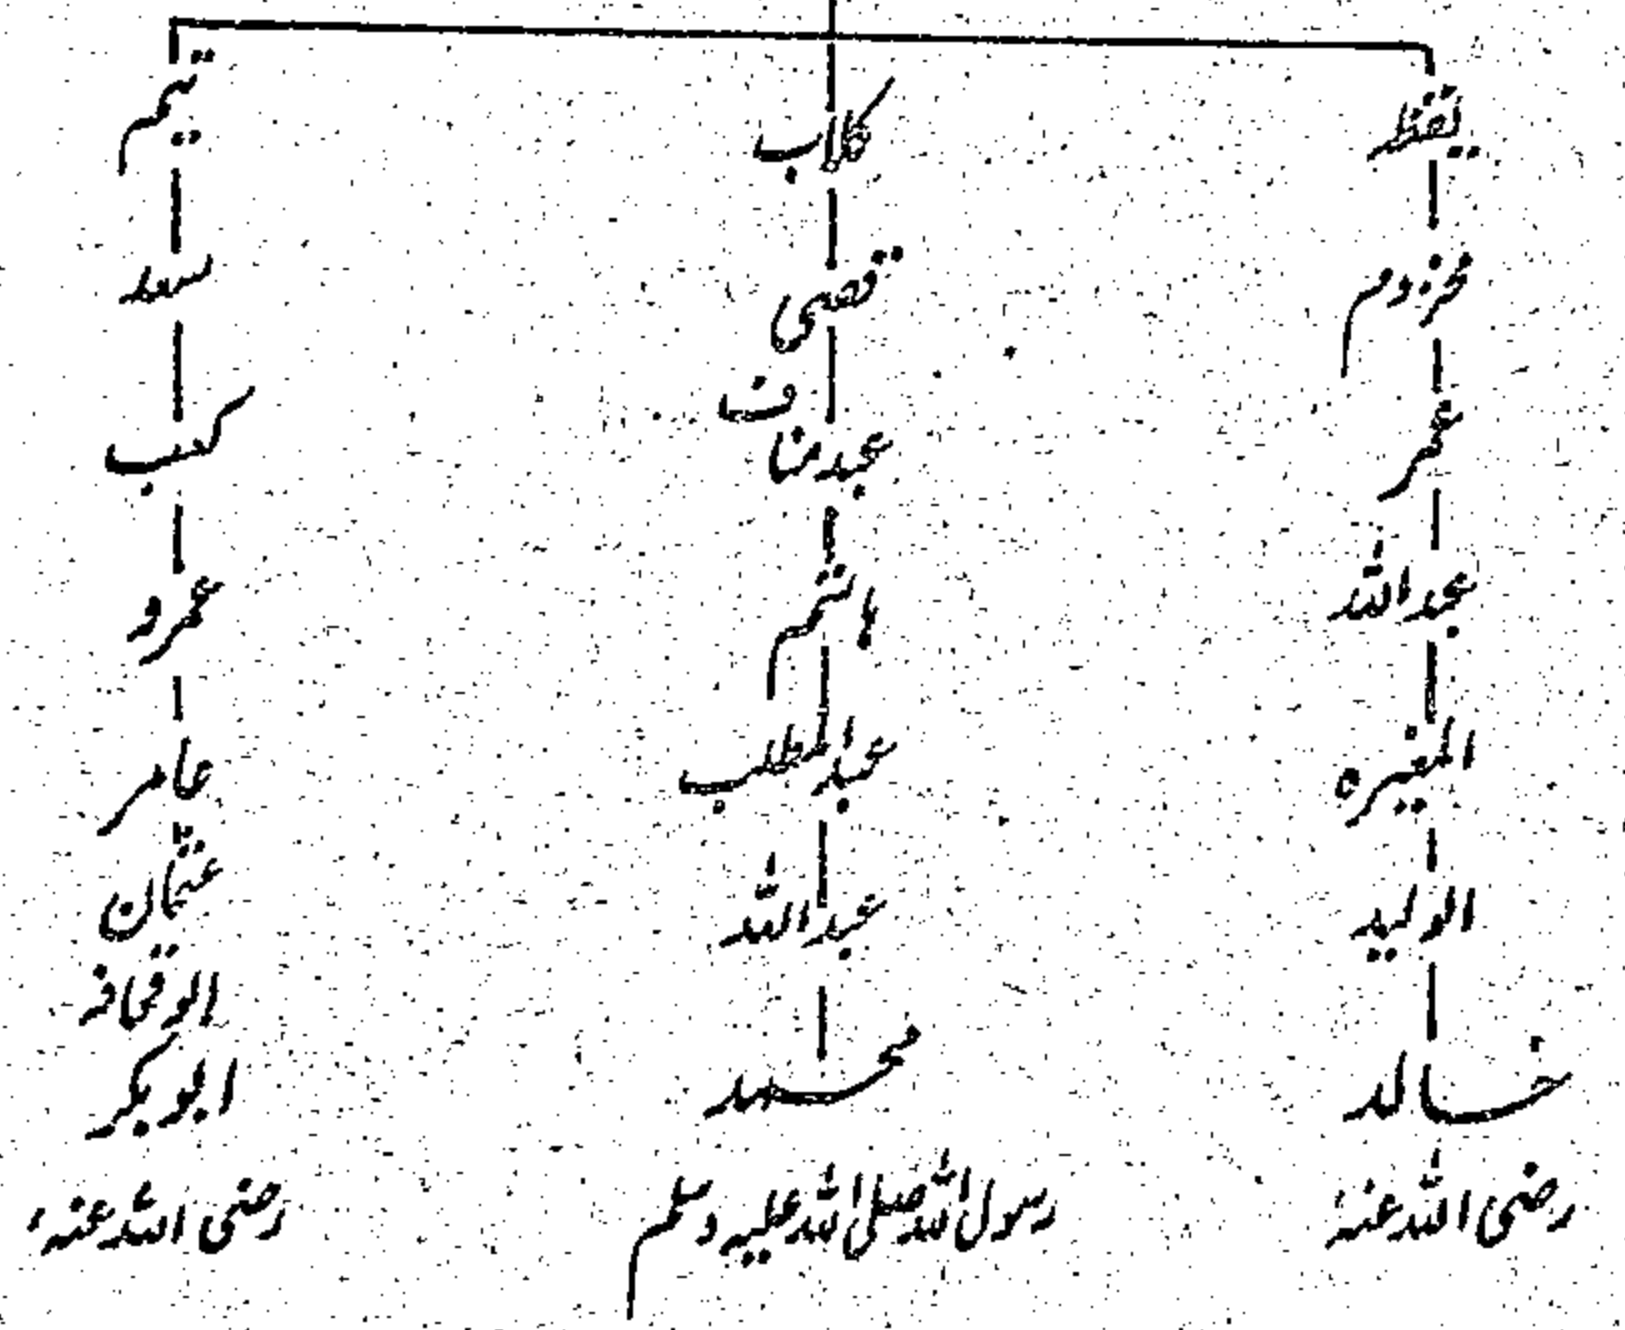 یقظہ
مخزوم
عمر
عبداللہ
المغیرہ
الولید
خالد
رضی اللہ عنہٗ
کلاب
قصی
عبدمناف
ہاشم
عبدالمطلب
عبداللہ
محمد
رسول اللہ صلی اللہ علیہ وسلم
تیم
سعد
کعب
عمرو
عامر
عثمان
ابوقحافہ
ابوبکر
رضی اللہ عنہٗ